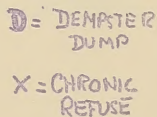 D = DEMPSTER
DUMP
X = CHRONIC
REFUSE